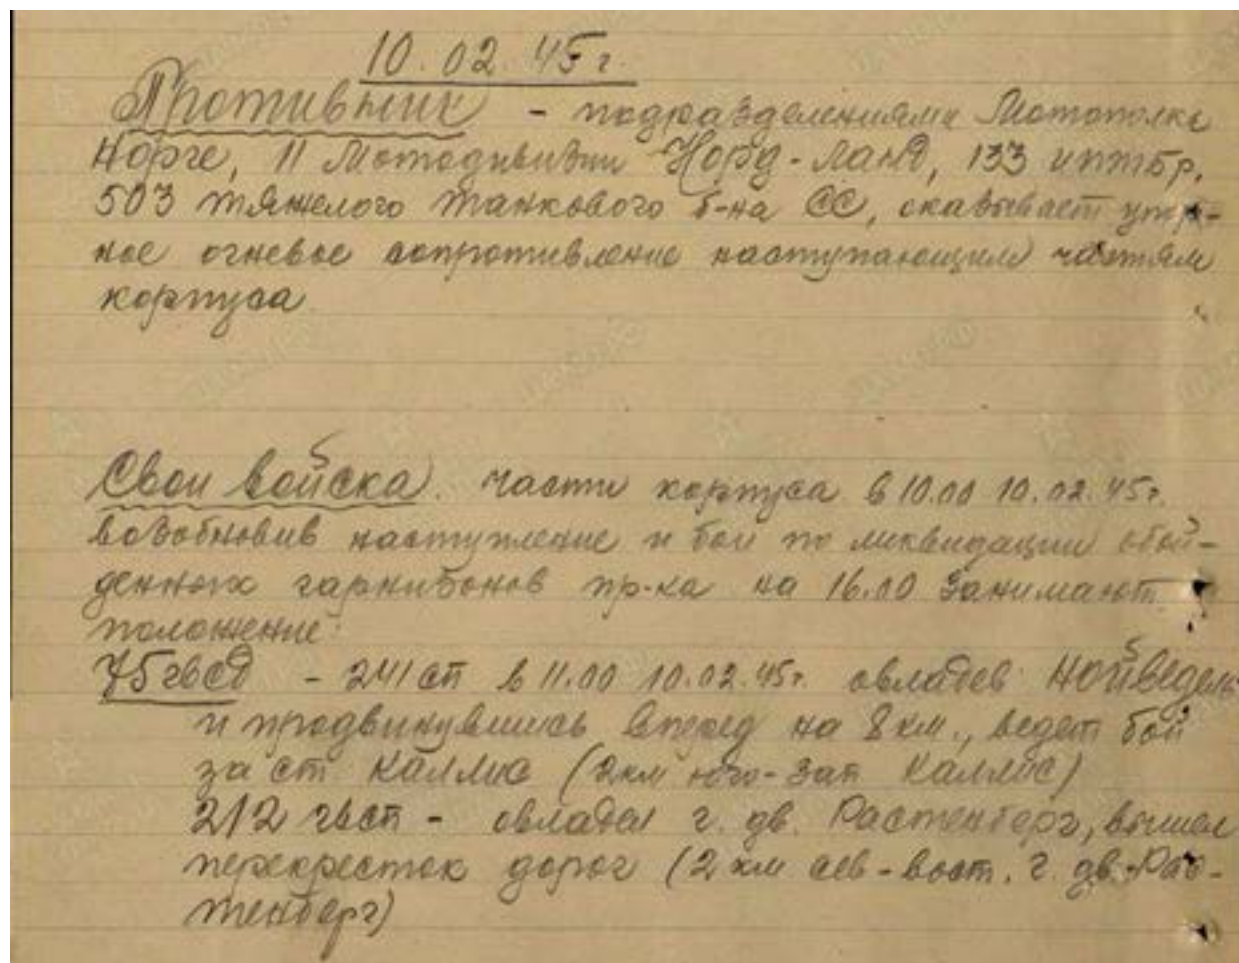 10.02.45г.
Противник - подразделениями Мотополка
Норге, 11 Мотодивизии Норд-Ланд, 133 иптбр,
503 тяжелого танкового б-на СС, оказывает упор-
ное огневое сопротивление наступающим частям
корпуса
Свои войска. части корпуса в 10.00 10.02.45г.
возобновив наступление и бои по ликвидации обой-
денных гарнизонов пр-ка на 16.00 занимают
положение:
75гвсд - 241 сп в 11.00 10.02.45г. овладев Нойведель
и продвинувшись вперед на 8 км., ведет бой
за ст Каллис (2км юго-зап Каллис)
212 гвсп - овладел г. дв. Растенберг, вышел
перекресток дорог (2 км сев-вост. г. дв. Рас-
тенберг)